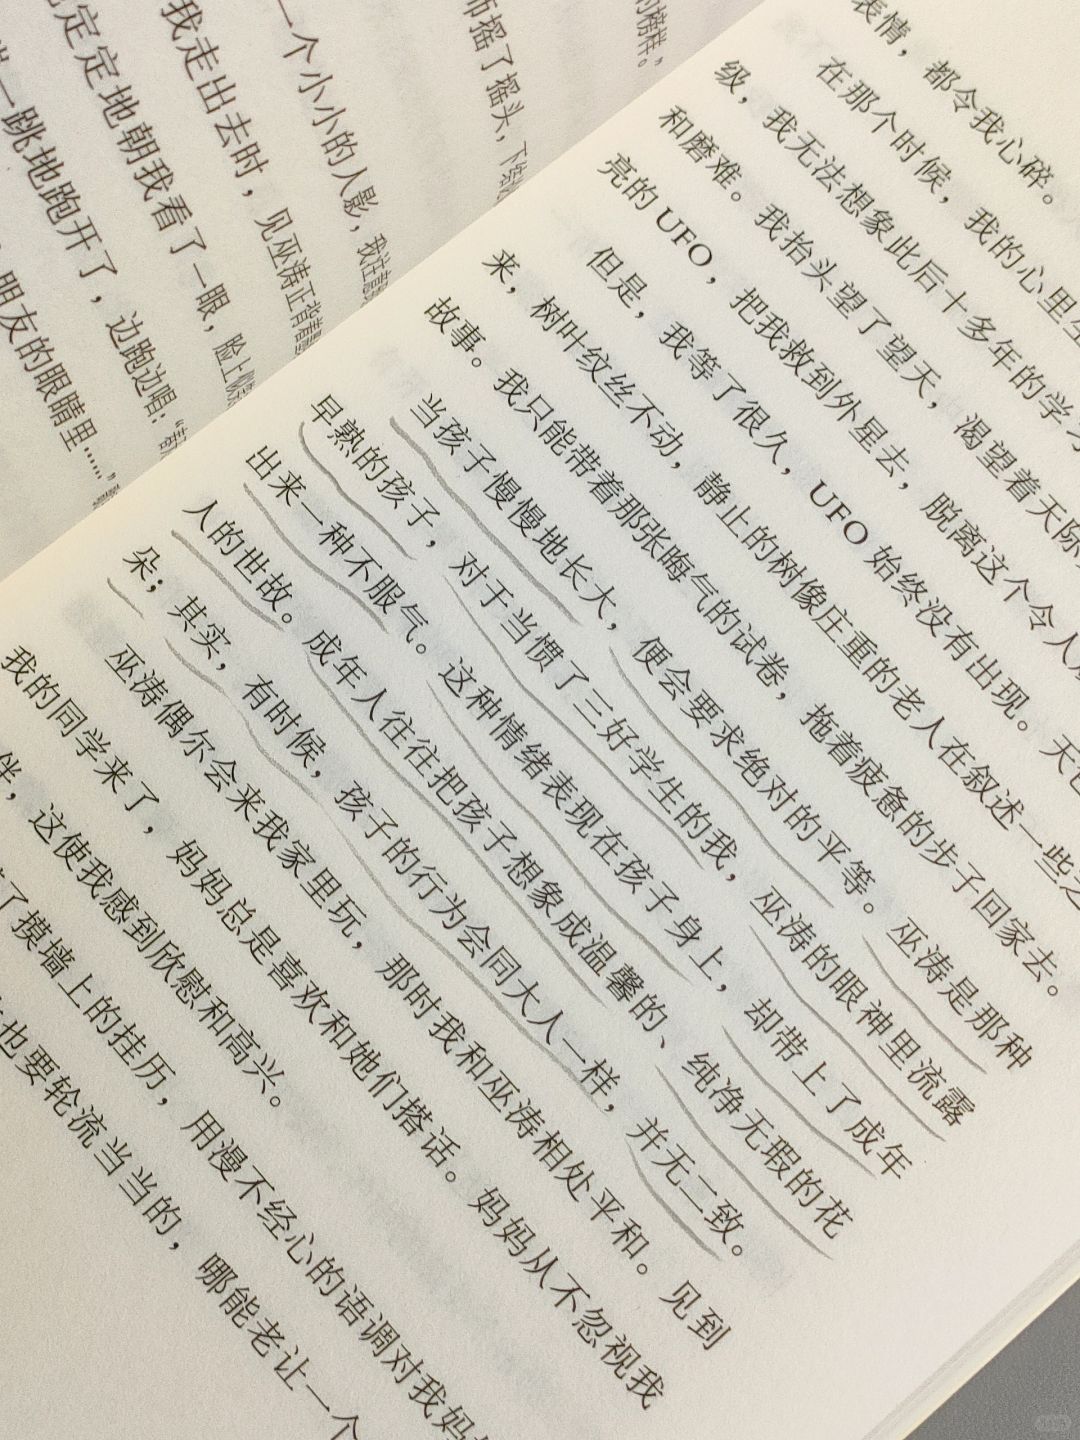 一个小小的人影，我注意
我走出去时，见巫涛正背着
定定地朝我看了一眼，脸上
一跳地跑开了，边跑边唱：“
朋友的眼睛里……”
师摇了摇头，下
的榜样。”
表情，都令我心碎。
在那个时候，我的心里
级，我无法想象此后十多年的学习
和磨难。我抬头望了望天，渴望着天际
亮的UFO，把我救到外星去，脱离这个令人
但是，我等了很久，UFO始终没有出现。天
来，树叶纹丝不动，静止的树像庄重的老人在叙述一些
故事。我只能带着那张晦气的试卷，拖着疲惫的步子回家去。
当孩子慢慢地长大，便会要求绝对的平等。巫涛是那种
早熟的孩子，对于当惯了三好学生的我，巫涛的眼神里流露
出来一种不服气。这种情绪表现在孩子身上，却带上了成年
人的世故。成年人往往把孩子想象成温馨的、纯净无瑕的花
朵；其实，有时候，孩子的行为会同大人一样，并无二致。
巫涛偶尔会来我家里玩，那时我和巫涛相处平和。见到
我的同学来了，妈妈总是喜欢和她们搭话。妈妈从不忽视我
伴，这使我感到欣慰和高兴。
了摸墙上的挂历，用漫不经心的语调对我妈妈
也要轮流当当的，哪能老让一个